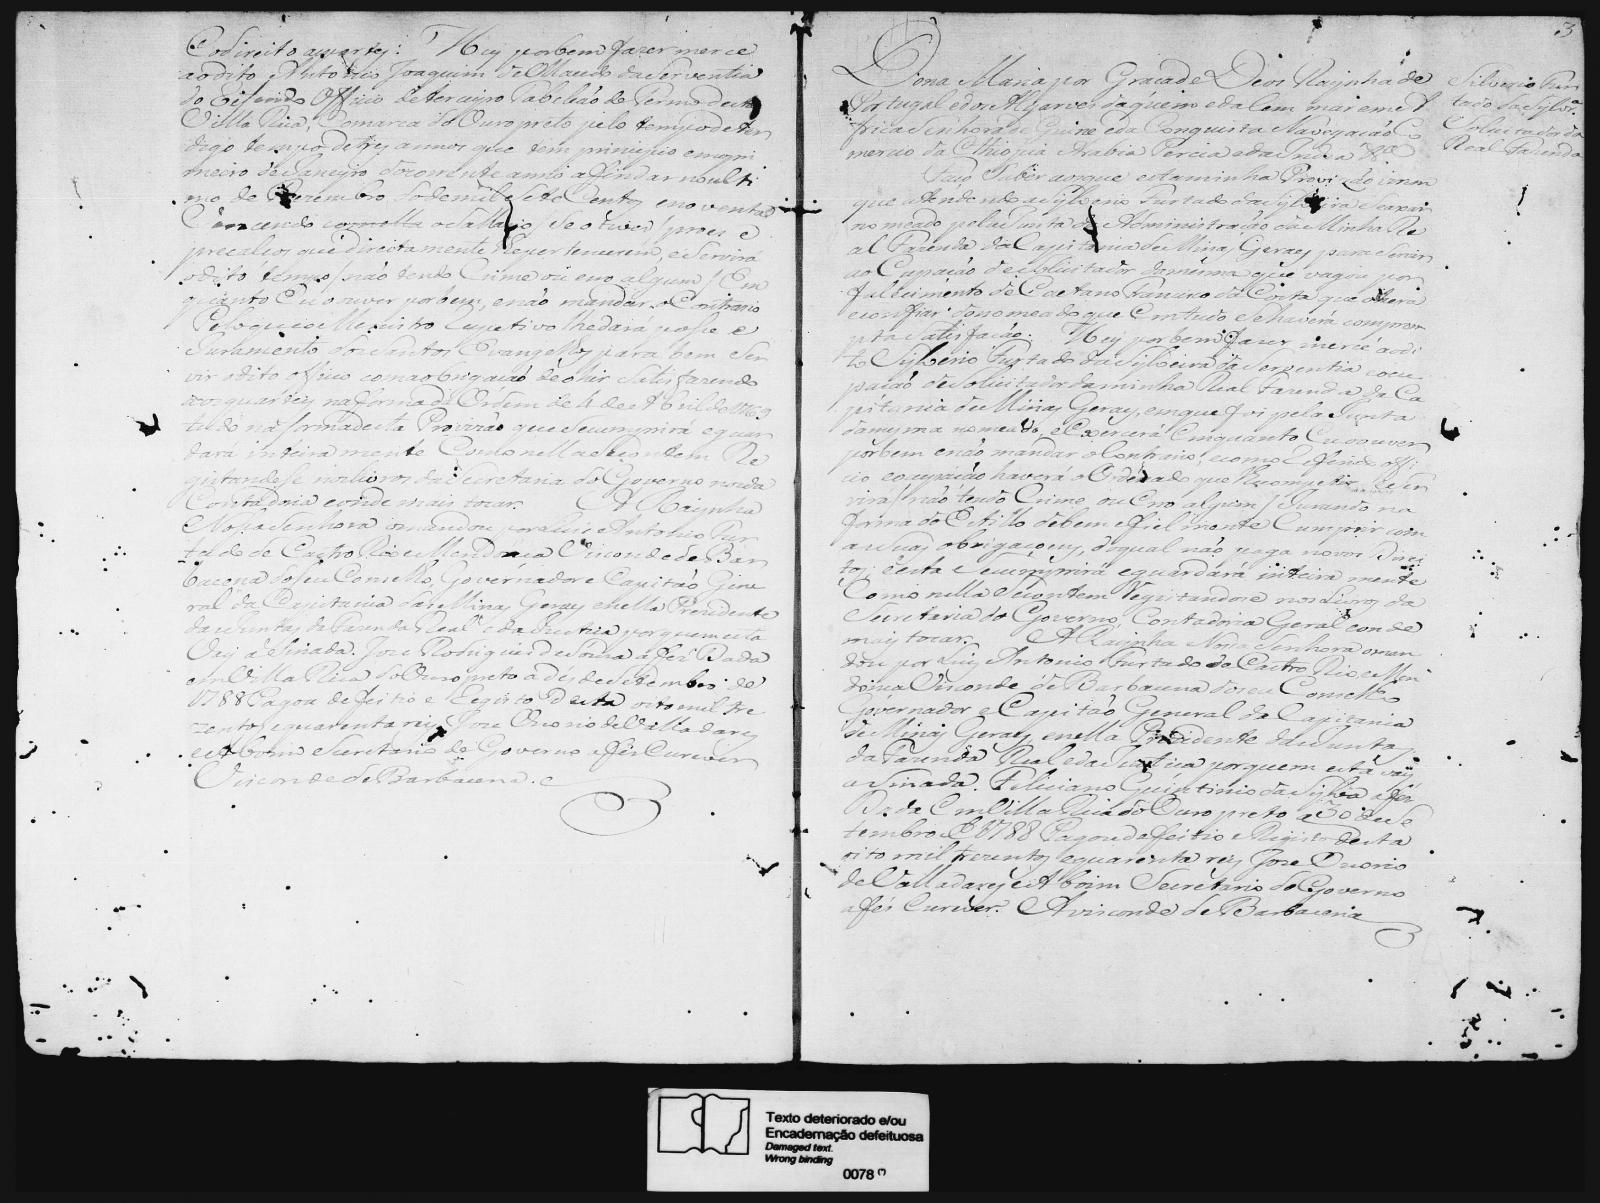 E o direito aquartes: Hey por bem fazer merce
ao dito Antonio Joaquim de Macedo da Serventia
do Officio de terceyro Tabeliaõ do Termo desta
Villa Rica, Comarca do Ouro preto pelo tempo de
digo tempo de tres annos que tem principio em o pri
meiro de Janeyro do corrente anno a findar no ulti
mo de Dezembro do de mil e Sete Centos e noventa
Vencendo o Sallario, se o tiver, proes e
precalsos que direitamente lhe pertencerem, e servirá
o dito tempo / naõ tendo Crime ou erro algum / Em
quanto Eu o ouver por bem, e naõ mandar o Contrario
Pelo que o Menistro Respetivo lhe dará posse e
Juramento dos Santos Evangelhos para bem Ser
vir o dito officio com a obrigaçaõ de o hir Satisfazendo
aos quarteis na forma da Ordem de 4 de Abril de 1769
tudo na forma desta Provizaõ que Se cumprirá e guar
dará inteira mente Como nella se contem Re
gistandose nos livros da Secretaria do Governo na da
Contadoria e onde mais tocar. A Raynha
Nossa Senhora o mandou por Luis Antonio Fur
tado de Castro Rio e Mendonca Visconde de Bar
bacena do Seu Conselho, Governador e Capitaõ Gene
ral da Capitania das Minas Geraes e nella Prezidente
das Juntas da Fazenda Real e da Justiça por quem esta
Vay aSinada. Joze Rodrigues de Souza a fes Dada
em Villa Rica do Ouro preto a dés de Setembro de
1788 Pagou de feitio e Registo desta oito mil tre
zentos e quarenta reis Joze Onorio de Valladares
e Aboim Secretario do Governo a fes Escrever
Visconde de Barbacena.
3
Dona Maria por Graça de Deos Raynha de
Portugal e dos Algarves daquem e da lem mar em A
frica Senhora de Guiné e da Conquista Navegacaõ Co
mercio da Ethiopia Arabia Percia e da India &ª
Faço Saber aos que esta minha Provizaõ virem
que atendendo a Sylverio Furtado da Sylveira Se axar
nomeado pela Junta da Administraçaõ da Minha Re
al Fazenda da Capitania de Minas Geraes para Servir
a o Cupaçaõ de Solicitador da mesma que vagou por
falecimento de Caetano Francisco da Costa que
e confiar do nomeado que em tudo Se haverá com prom
pta Satisfaçaõ. Hey por bem fazer mercé ao di
to Sylverio Furtado da Sylveira da Serventia e ocu
paçaõ de Solicitador da minha Real Fazenda da Ca
pitania de Minas Geraes, em que foi pela Junta
da mesma nomeado, e Exercerá Emquanto Eu o ouver
por bem e naõ mandar o Contrario, e com o referido offi
cio e ocupaçaõ haverá o Ordenado que lhe competir e Ser
virá / naõ tendo Crime ou Erro algum / Jurando na
forma do Estillo de bem e fiel mente Cumprir com
as Suas obrigaçoens, do qual naõ paga novos Direi
tos: e esta Se cumprirá e guardará inteira mente
Como nella Se contem registandose nos livros da
Secretaria do Governo, Contadoria Geral e onde
mais tocar. A Raynha Nossa Senhora o man
dou por Luis Antonio Furtado de Castro Rio e Men
donca Visconde de Barbacena do Seu Conselho
Governador e Capitaõ General da Capitania
de Minas Geraes, e nella Prezidente das Juntas
da Fazenda Real e da Justiça por quem esta vay
aSinada. Feliciano Quintinio da Sylva a fes
Dada Em Villa Rica do Ouro preto a 30 de Se
tembro de 1788 Pagou de feitio e Registo desta
oito mil trezentos e quarenta reis Joze Onorio
de Valladares e Aboim Secretario do Governo
a fes Escrever. Visconde de Barbacena
Silverio Fur
tado da Sylvrª
Solicitador da
Real Fazenda
Texto deteriorado e/ou
Encadernação defeituosa
Damaged text.
Wrong binding
0078 (*)